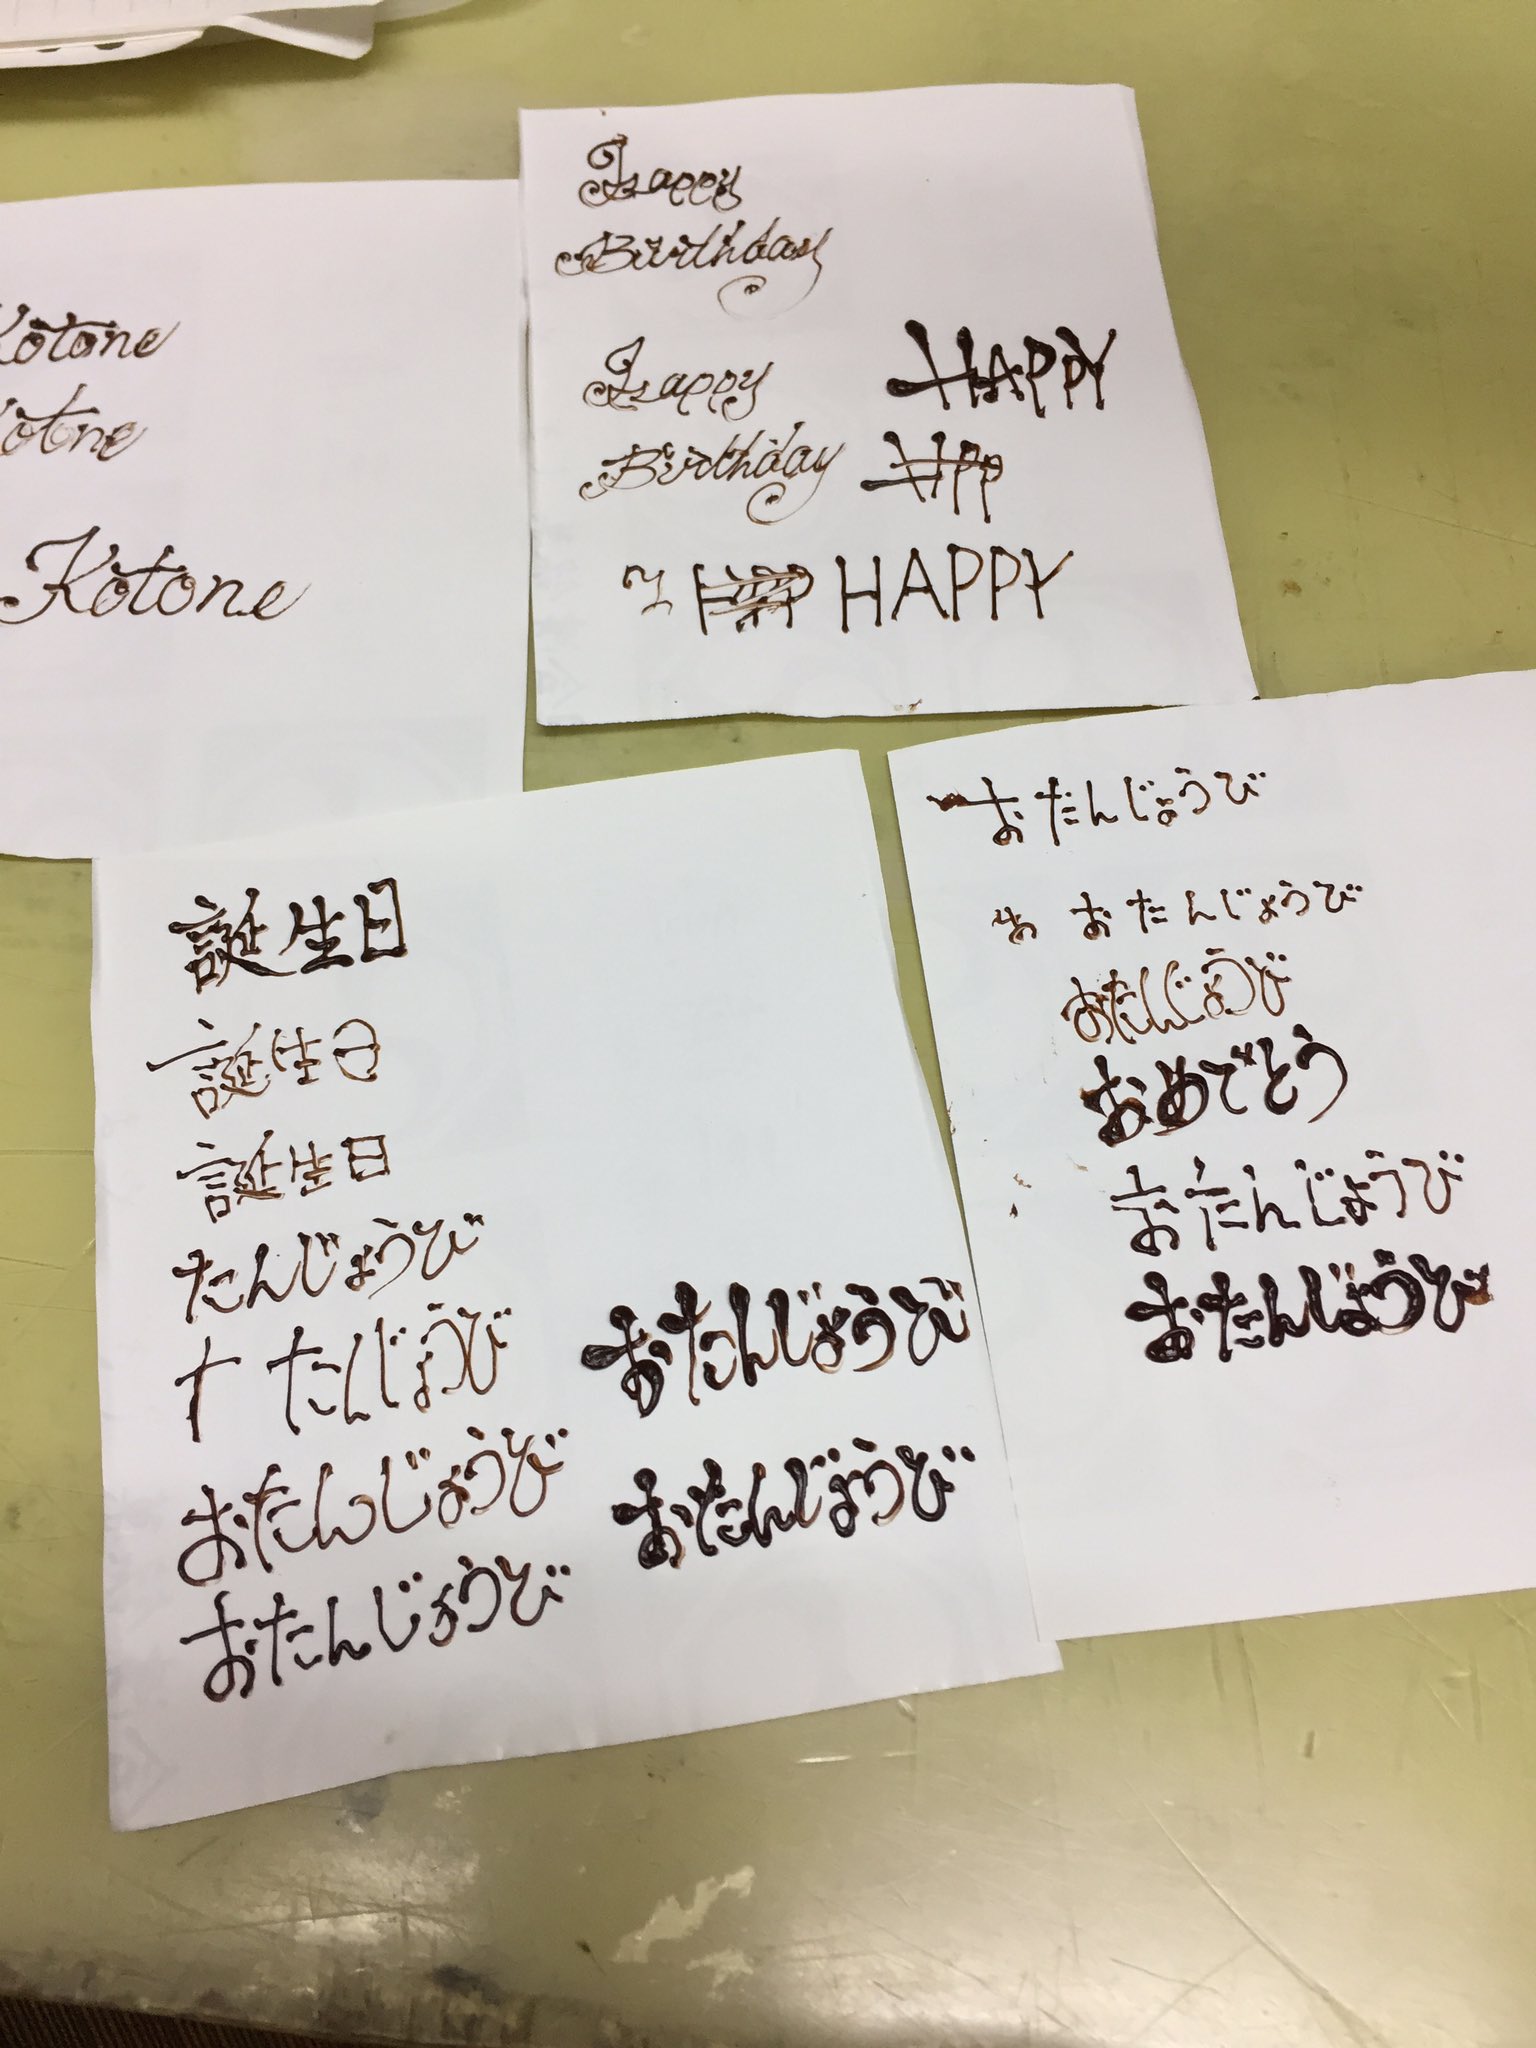 Kotone
Kotone
Kotone
Happy
Birthday
Happy
Birthday
HAPPY
HPP
HAPPY
誕生日
誕生日
誕生日
たんじょうび
ナ たんじょうび
おたんじょうび
おたんじょうび
おたんじょうび
おたんじょうび
おたんじょうび
お おたんじょうび
おたんじょうび
おめでとう
おたんじょうび
おたんじょうび